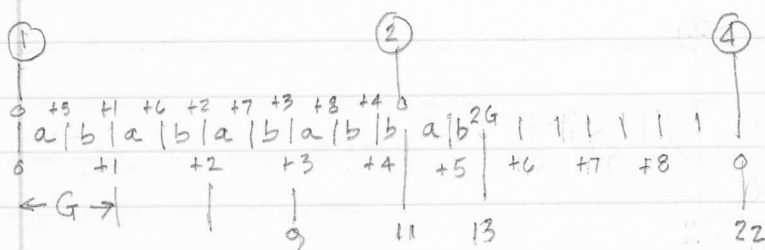 1 2 4
0 +5 +1 +6 +2 +7 +3 +8 +4 0
a | b | a | b | a | b | a | b | b a | b 2G
0 +1 +2 +3 +4 +5 +6 +7 +8 0
← G →
9 11 13 22